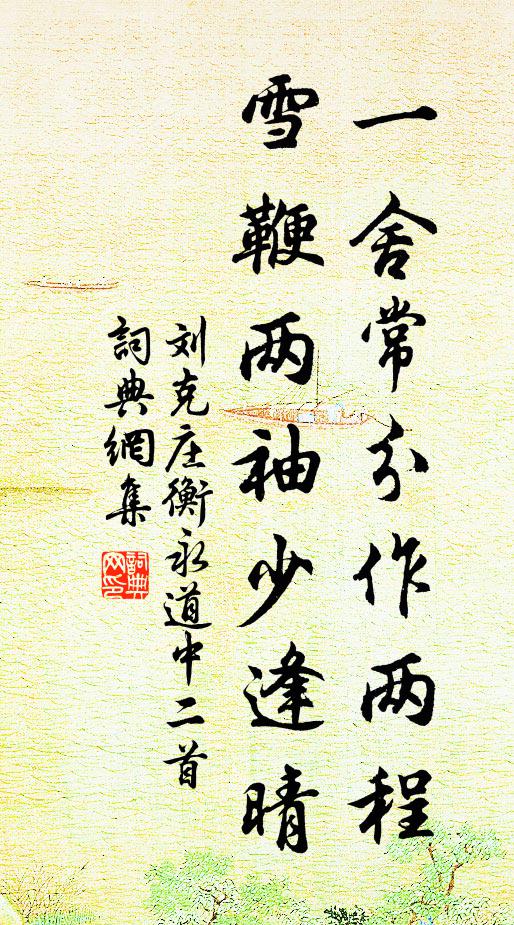 一舍常分作两程
雪鞭两袖少逢晴
刘克庄衡永道中二首
詞典網集
詞典网印